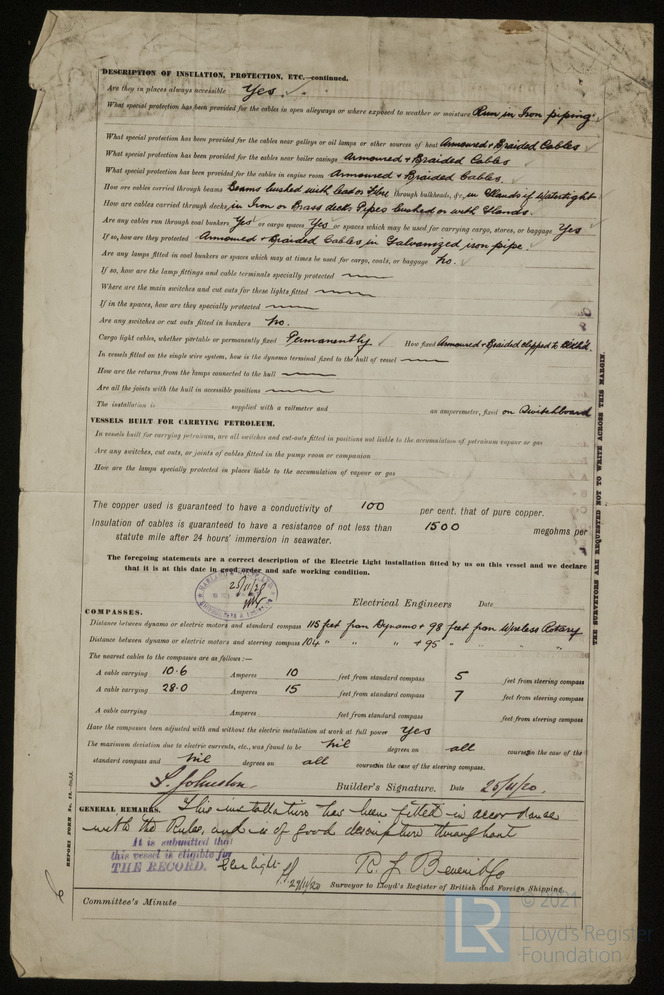 DESCRIPTION OF INSULATION, PROTECTION, ETC.—continued.
Are they in places always accessible Yes.
What special protection has been provided for the cables in open alleyways or where exposed to weather or moisture Run in Iron piping.
What special protection has been provided for the cables near galleys or oil lamps or other sources of heat Armoured + Braided Cables
What special protection has been provided for the cables near boiler casings Armoured + Braided Cables
What special protection has been provided for the cables in engine room Armoured + Braided Cables.
How are cables carried through beams Beams bushed with lead or Fibre through bulkheads, &c. in Glands if Watertight
How are cables carried through decks in Iron or Brass deck Pipes bushed or with Glands.
Are any cables run through coal bunkers Yes or cargo spaces Yes or spaces which may be used for carrying cargo, stores, or baggage Yes
If so, how are they protected Armoured + Braided Cables in Galvanized iron pipe.
Are any lamps fitted in coal bunkers or spaces which may at times be used for cargo, coals, or baggage No.
If so, how are the lamp fittings and cable terminals specially protected
Where are the main switches and cut outs for these lights fitted
If in the spaces, how are they specially protected
Are any switches or cut outs fitted in bunkers No.
Cargo light cables, whether portable or permanently fixed Permanently How fixed Armoured + Braided clipped to
In vessels fitted on the single wire system, how is the dynamo terminal fixed to the hull of vessel
How are the returns from the lamps connected to the hull
Are all the joints with the hull in accessible positions
The installation is supplied with a voltmeter and an amperemeter, fixed on Switchboard
VESSELS BUILT FOR CARRYING PETROLEUM.
In vessels built for carrying petroleum, are all switches and cut-outs fitted in positions not liable to the accumulation of petroleum vapour or gas
Are any switches, cut outs, or joints of cables fitted in the pump room or companion
How are the lamps specially protected in places liable to the accumulation of vapour or gas
The copper used is guaranteed to have a conductivity of 100 per cent. that of pure copper.
Insulation of cables is guaranteed to have a resistance of not less than 1500 megohms per
statute mile after 24 hours' immersion in seawater.
The foregoing statements are a correct description of the Electric Light installation fitted by us on this vessel and we declare
that it is at this date in good order and safe working condition.
25/11/20
Electrical Engineers Date
COMPASSES.
Distance between dynamo or electric motors and standard compass 115 feet from Dynamo + 98 feet from Wireless Rotary
Distance between dynamo or electric motors and steering compass 104 " " " + 95 " " " "
The nearest cables to the compasses are as follows:—
A cable carrying 10.6 Amperes 10 feet from standard compass 5 feet from steering compass
A cable carrying 28.0 Amperes 15 feet from standard compass 7 feet from steering compass
A cable carrying Amperes feet from standard compass feet from steering compass
Have the compasses been adjusted with and without the electric installation at work at full power Yes
The maximum deviation due to electric currents, etc., was found to be Nil degrees on all courses in the case of the
standard compass and Nil degrees on all courses in the case of the steering compass.
S. Johnston Builder's Signature. Date 25/11/20.
GENERAL REMARKS. This installation has been fitted in accordance
with the Rules, and is of good description throughout
It is submitted that
this vessel is eligible for
THE RECORD. Elec light
29/11/20
R. J. Beveridge
Surveyor to Lloyd's Register of British and Foreign Shipping.
Committee's Minute
THE SURVEYORS ARE REQUESTED NOT TO WRITE ACROSS THIS MARGIN.
© 2021
LR
Lloyd's Register
Foundation